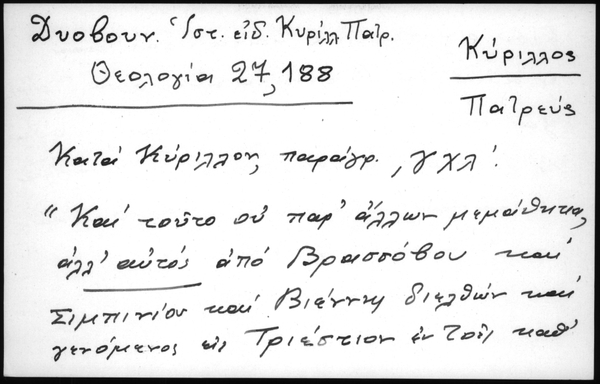 Δυοβουν. Ἱστ. εἰδ. Κυρίλλ Πατρ.
Θεολογία 27, 188
Κύριλλος
Πατρεύς
Κατά Κύριλλον, παράγρ. ͵γχλʹ.
"Καί τοῦτο οὐ παρ' ἄλλων μεμάθηκα,
ἀλλ' αὐτός ἀπό Βρασσόβου καί
Σιμπινίου καί Βιέννης διελθών καί
γενόμενος εἰς Τριέστιον ἐν τοῖς καθ'